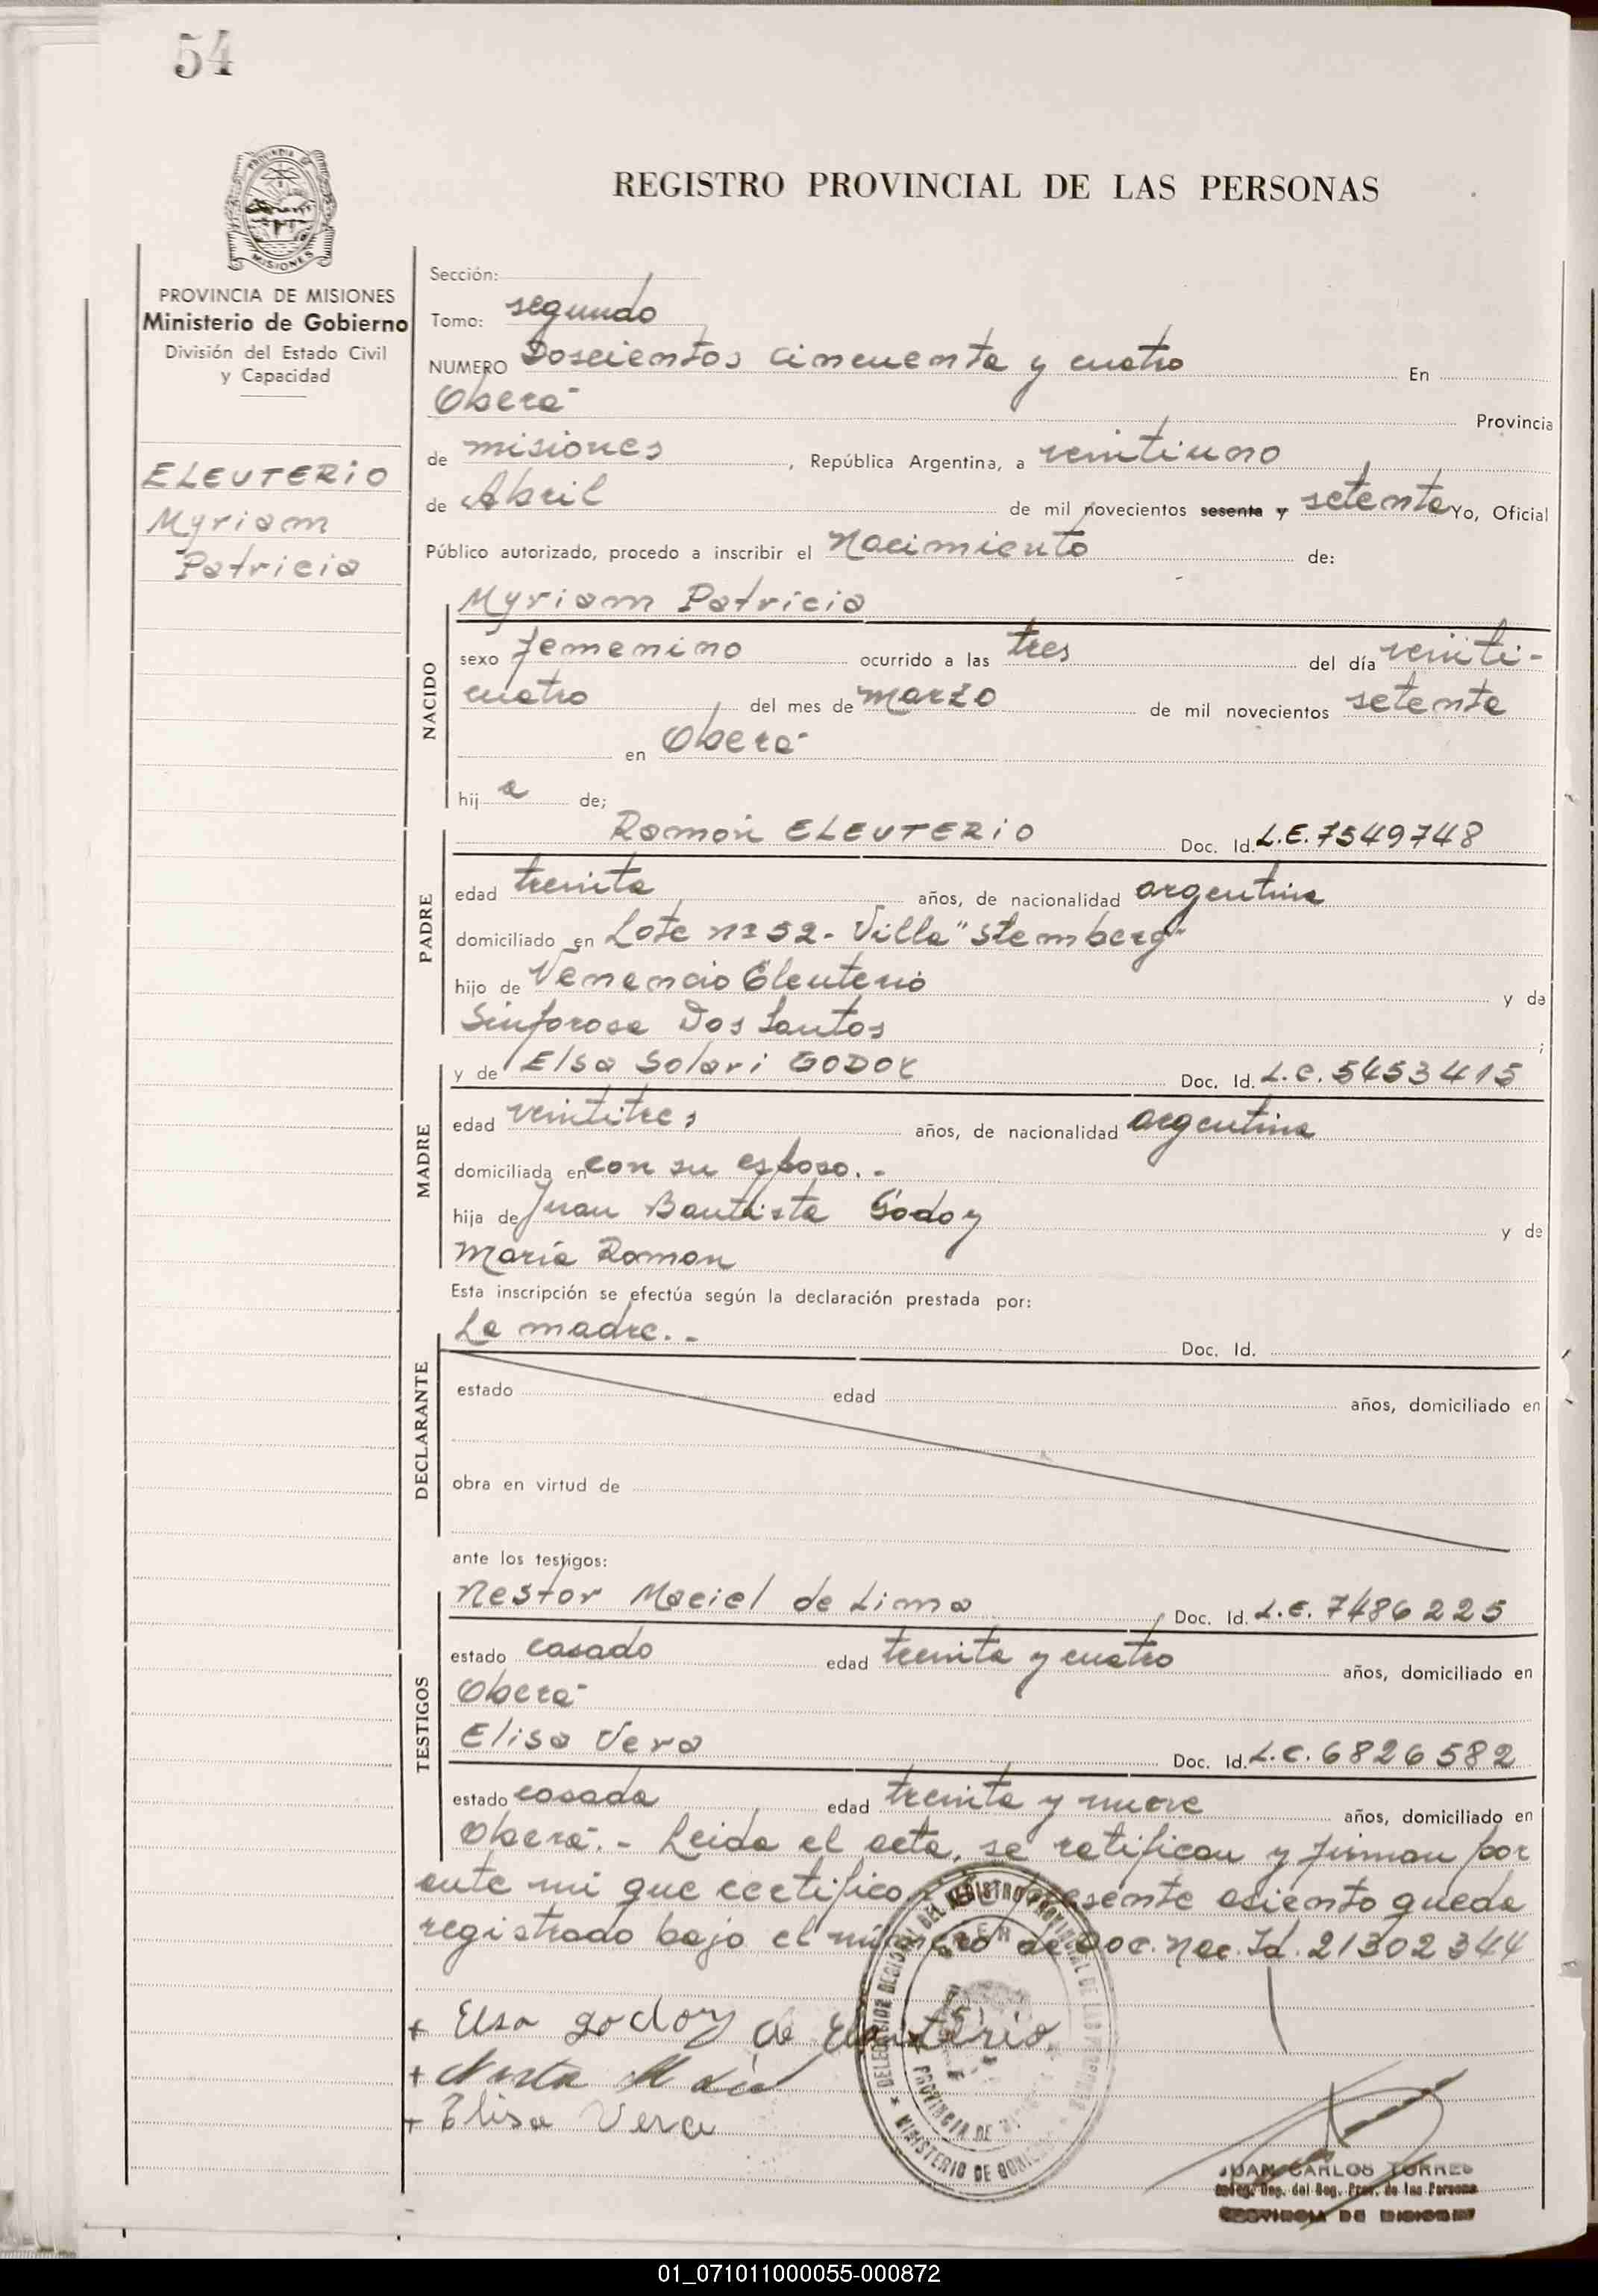 54
PROVINCIA DE
MISIONES
REGISTRO PROVINCIAL DE LAS PERSONAS
PROVINCIA DE MISIONES
Ministerio de Gobierno
División del Estado Civil
y Capacidad
ELEUTERIO
Myriam
Patricia
Sección:
Tomo: segundo
NUMERO Doscientos cincuenta y cuatro En
Oberá
Provincia
de misiones, República Argentina, a veintiuno
de Abril de mil novecientos sesenta y setenta Yo, Oficial
Público autorizado, procedo a inscribir el Nacimiento de:
NACIDO
Myriam Patricia
sexo femenino ocurrido a las tres del día veinti-
cuatro del mes de marzo de mil novecientos setenta
en Oberá
hij a de;
PADRE
Ramón ELEUTERIO Doc. Id. L.E. 7549748
edad treinta años, de nacionalidad argentina
domiciliado en Lote nº 52 - Villa "Stemberg"
hijo de Venancio Eleuterio y de
Sinforosa Dos Santos ;
MADRE
y de Elsa Solari GODOY Doc. Id. L.C. 5453415
edad veintitres años, de nacionalidad argentina
domiciliada en con su esposo. -
hija de Juan Bautista Godoy y de
María Roman
Esta inscripción se efectúa según la declaración prestada por:
DECLARANTE
La madre. - Doc. Id.
estado edad años, domiciliado en
obra en virtud de
ante los testigos:
TESTIGOS
Nestor Maciel de Lima, Doc. Id. L.E. 7486225
estado casado edad treinta y cuatro años, domiciliado en
Oberá
Elisa Vera Doc. Id. L.C. 6826582
estado casada edad treinta y nueve años, domiciliado en
Oberá. - Leida el acta, se ratifican y firman por
ante mi que certifico. El presente asiento queda
registrado bajo el número de Doc. Nac. Id. 21302344
+ Elsa godoy de Eleuterio
+
+ Elisa Vera
DELEGACION REGIONAL DEL REGISTRO PROVINCIAL DE LAS PERSONAS
PROVINCIA DE
MINISTERIO DE GOBIERNO
JUAN CARLOS TORRES
Deleg. Reg. del Reg. Prov. de las Personas
PROVINCIA DE MISIONES
01_071011000055-000872